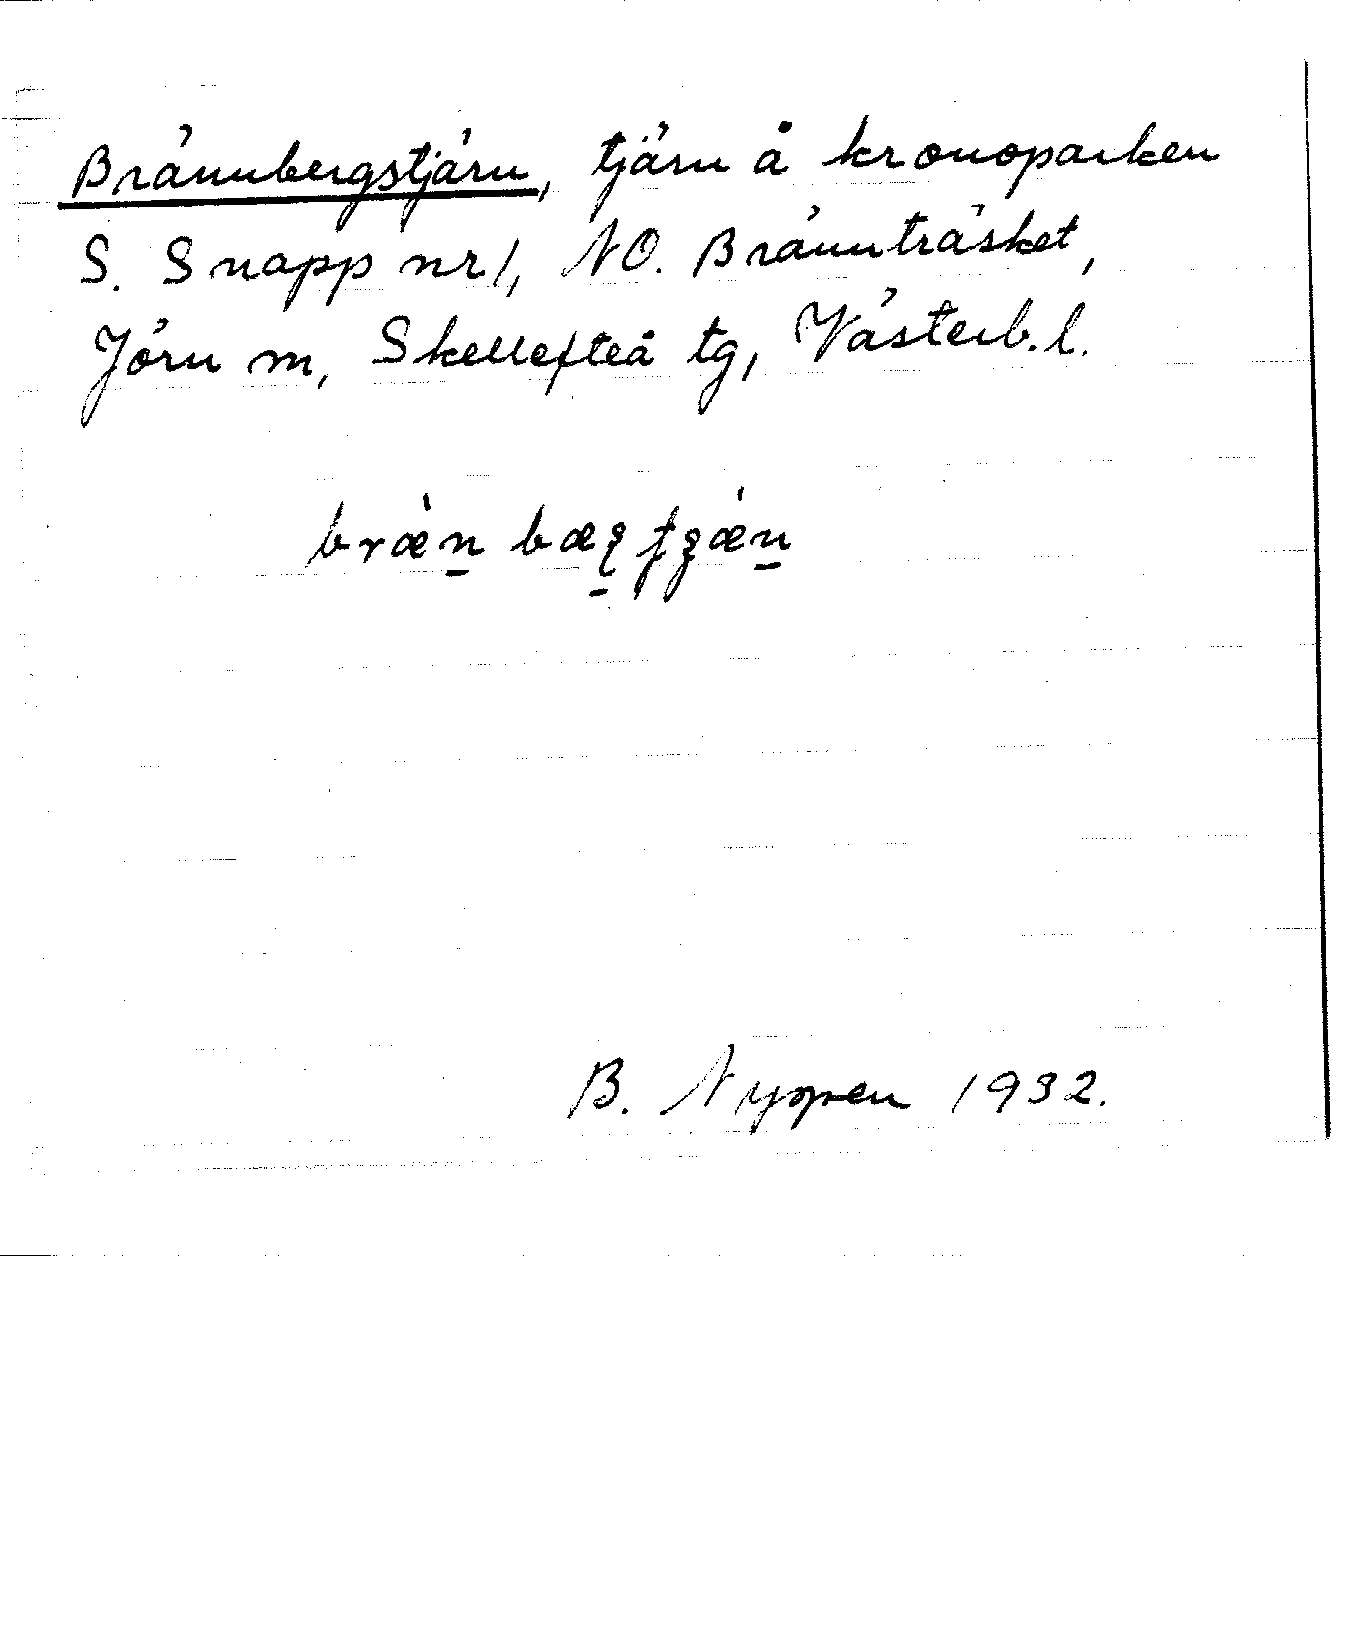 Brännbergstjärn, tjärn å kronoparken
S. Snapp nr 1, NO. Brännträsket,
Jörn m, Skellefteå tg, Västerb. l.
B. Nyppen 1932.